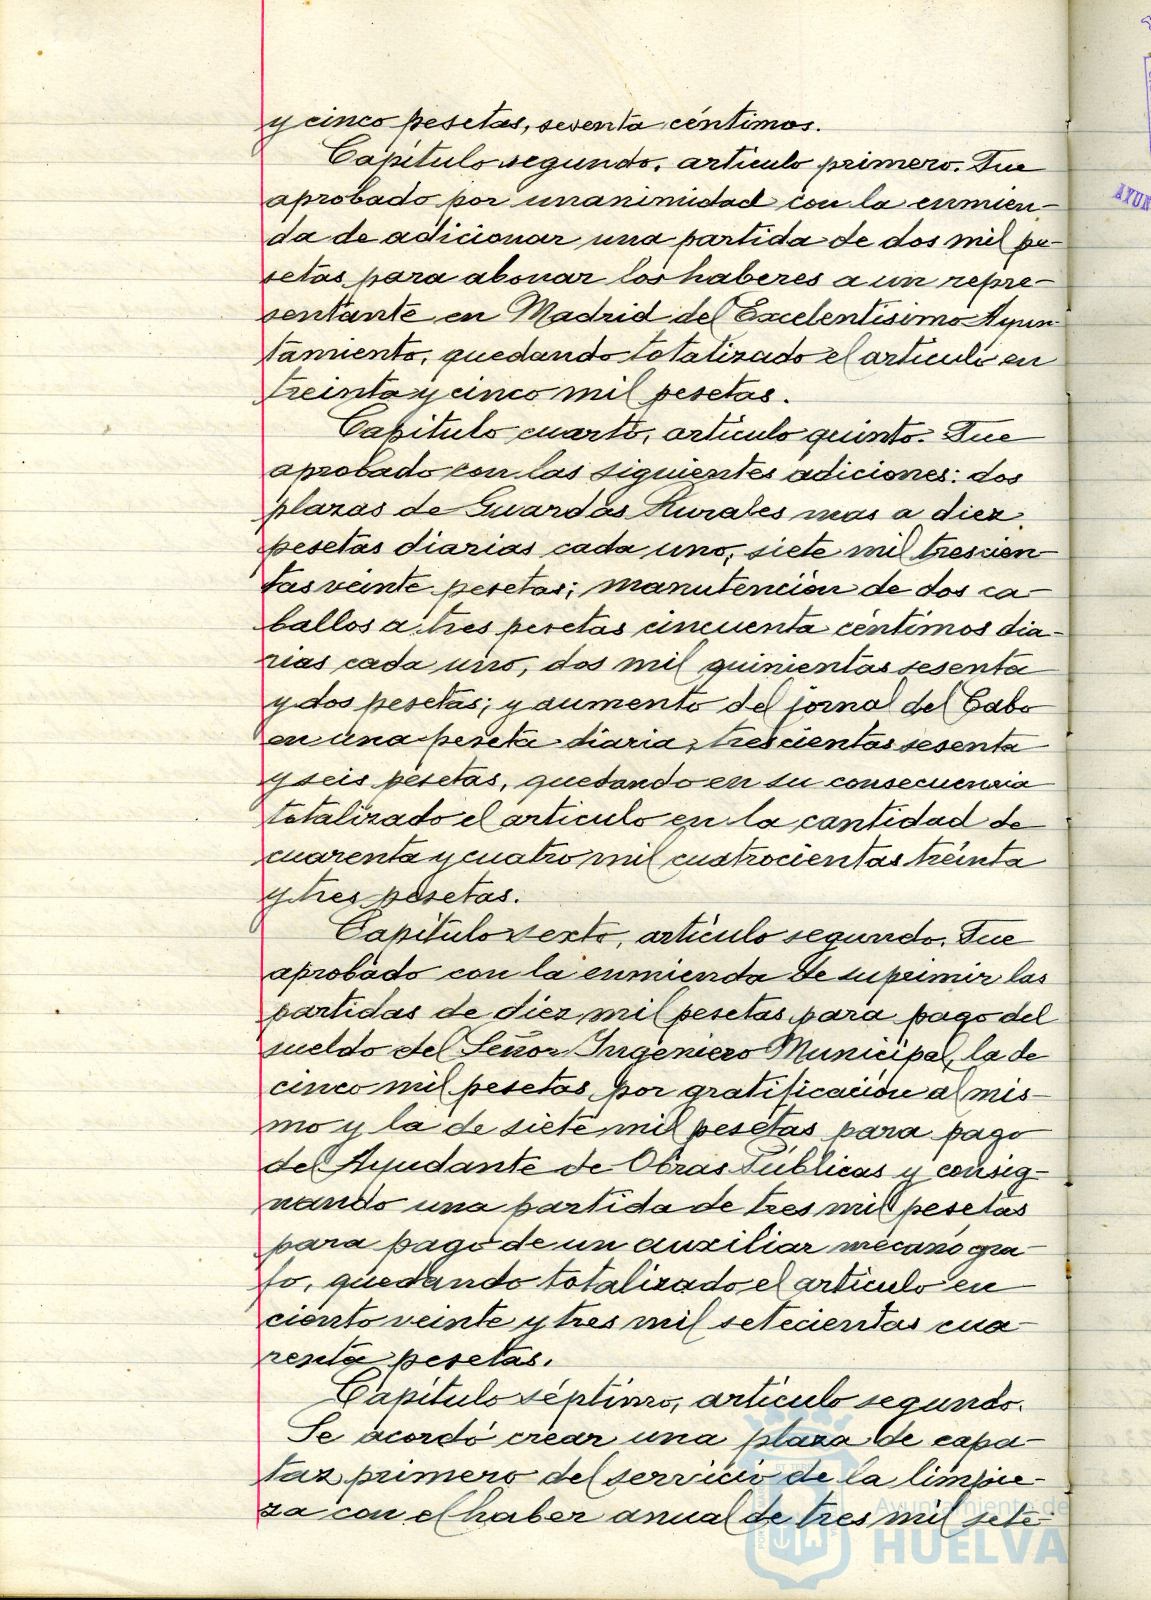 y cinco pesetas, sesenta céntimos.
Capítulo segundo, artículo primero. Fue
aprobado por unanimidad con la enmien-
da de adicionar una partida de dos mil pe-
setas para abonar los haberes a un repre-
sentante en Madrid del Excelentísimo Ayun-
tamiento, quedando totalizado el artículo en
treinta y cinco mil pesetas.
Capítulo cuarto, artículo quinto. Fue
aprobado con las siguientes adiciones: dos
plazas de Guardas Rurales mas a diez
pesetas diarias cada uno, siete mil trescien-
tas veinte pesetas; manutención de dos ca-
ballos a tres pesetas cincuenta céntimos dia-
rias cada uno, dos mil quinientas sesenta
y dos pesetas; y aumento del jornal del Cabo
en una peseta diaria, trescientas sesenta
y seis pesetas, quedando en su consecuencia
totalizado el artículo en la cantidad de
cuarenta y cuatro mil cuatrocientas treinta
y tres pesetas.
Capítulo sexto, artículo segundo. Fue
aprobado con la enmienda de suprimir las
partidas de diez mil pesetas para pago del
sueldo del Señor Ingeniero Municipal, la de
cinco mil pesetas por gratificación al mis-
mo y la de siete mil pesetas para pago
del Ayudante de Obras Públicas y consig-
nando una partida de tres mil pesetas
para pago de un auxiliar mecanógra-
fo, quedando totalizado el artículo en
ciento veinte y tres mil setecientas cua-
renta pesetas.
Capítulo séptimo, artículo segundo.
Se acordó crear una plaza de capa-
taz primero del servicio de la limpie-
za con el haber anual de tres mil sete-
Ayuntamiento de
HUELVA
AYUN